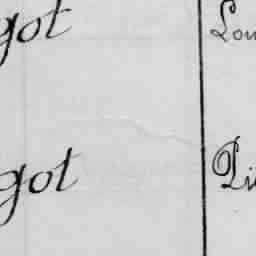 got Lou
got Pi